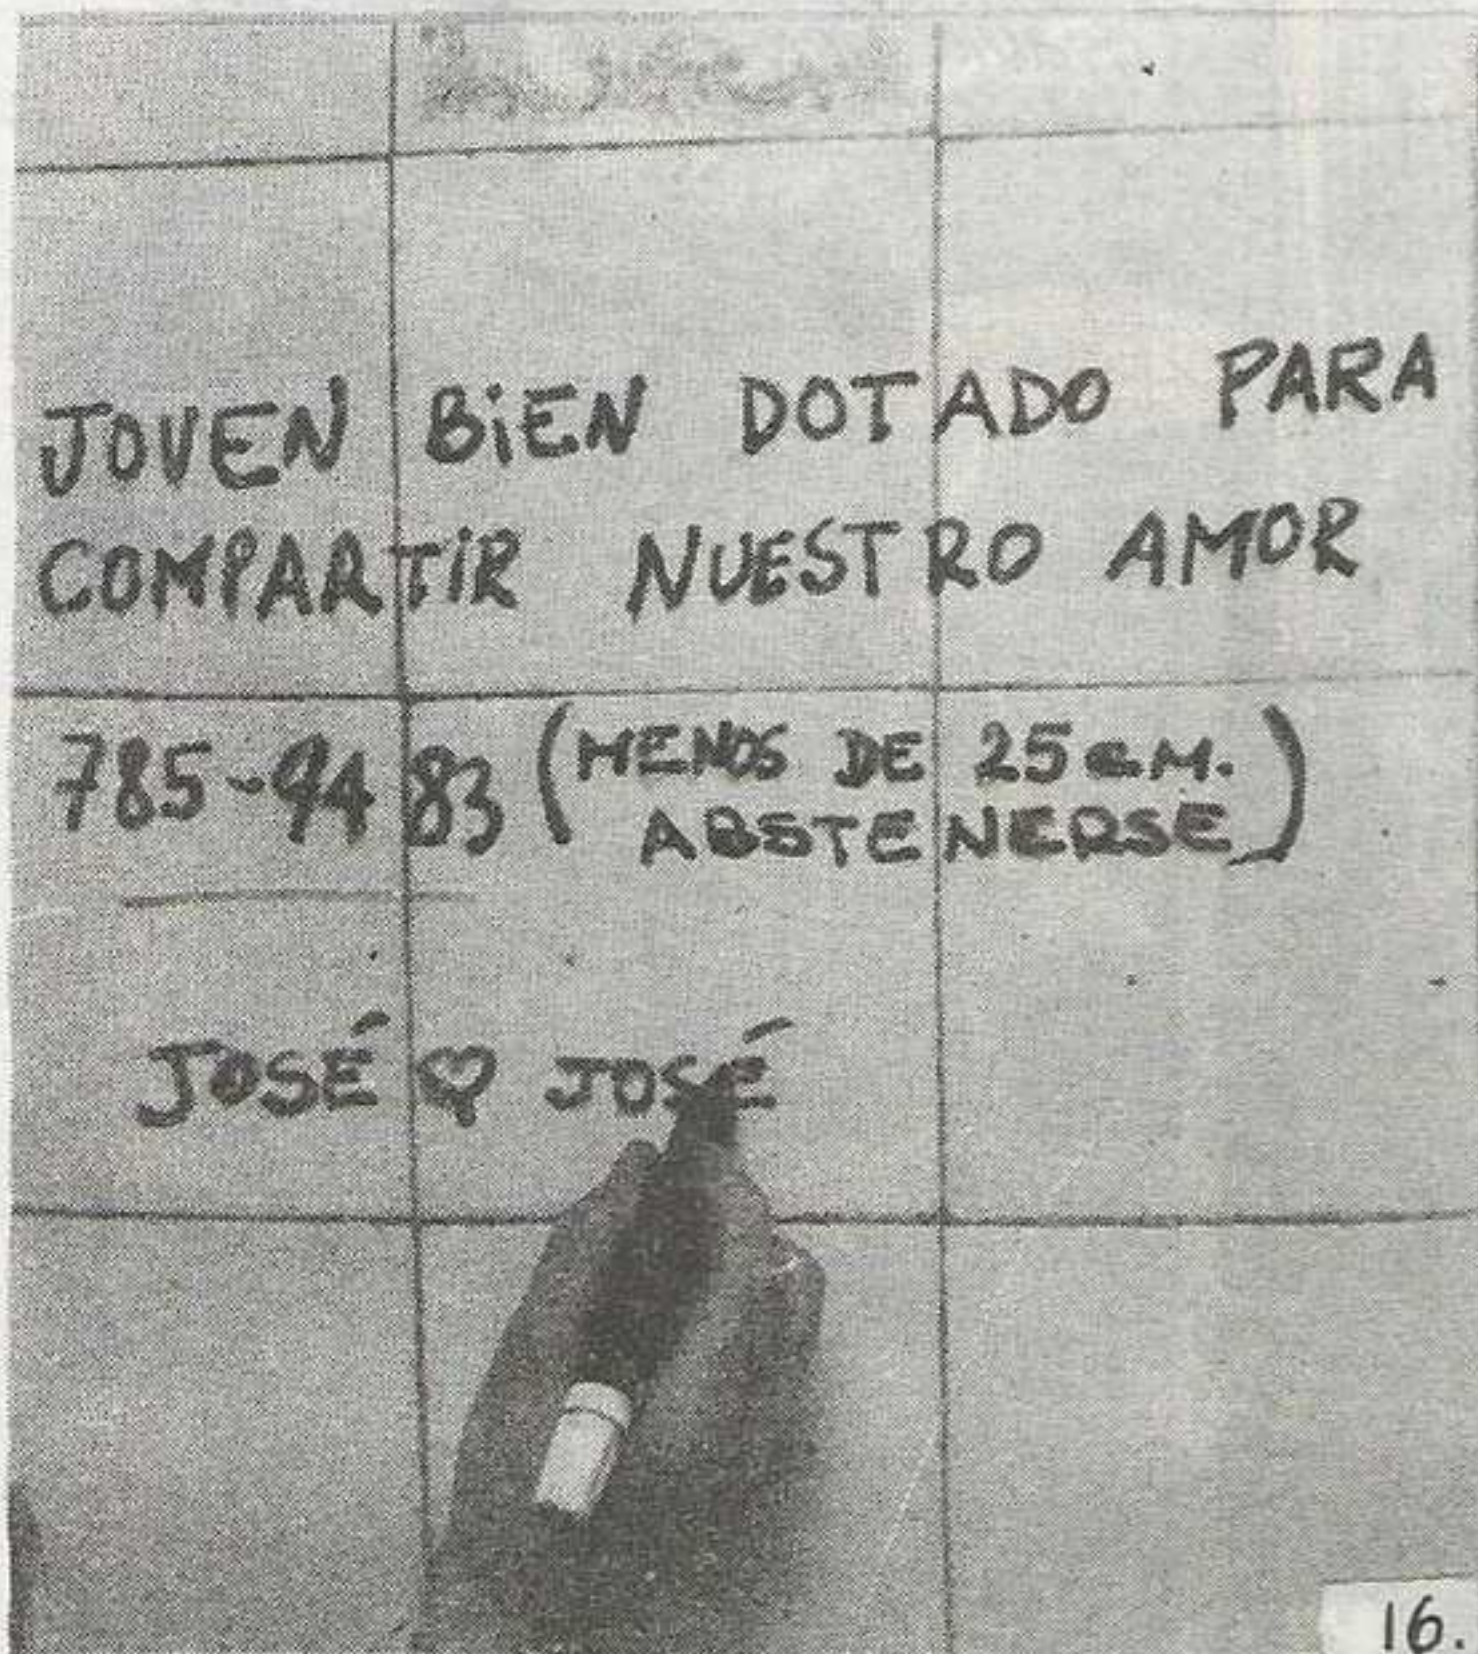 JOVEN BiEN DOTADO PARA
COMPARTiR NUESTRO AMOR
785-9483 (MENOS DE 25 CM.
ABSTENERSE)
JOSÉ ♡ JOSÉ
16.